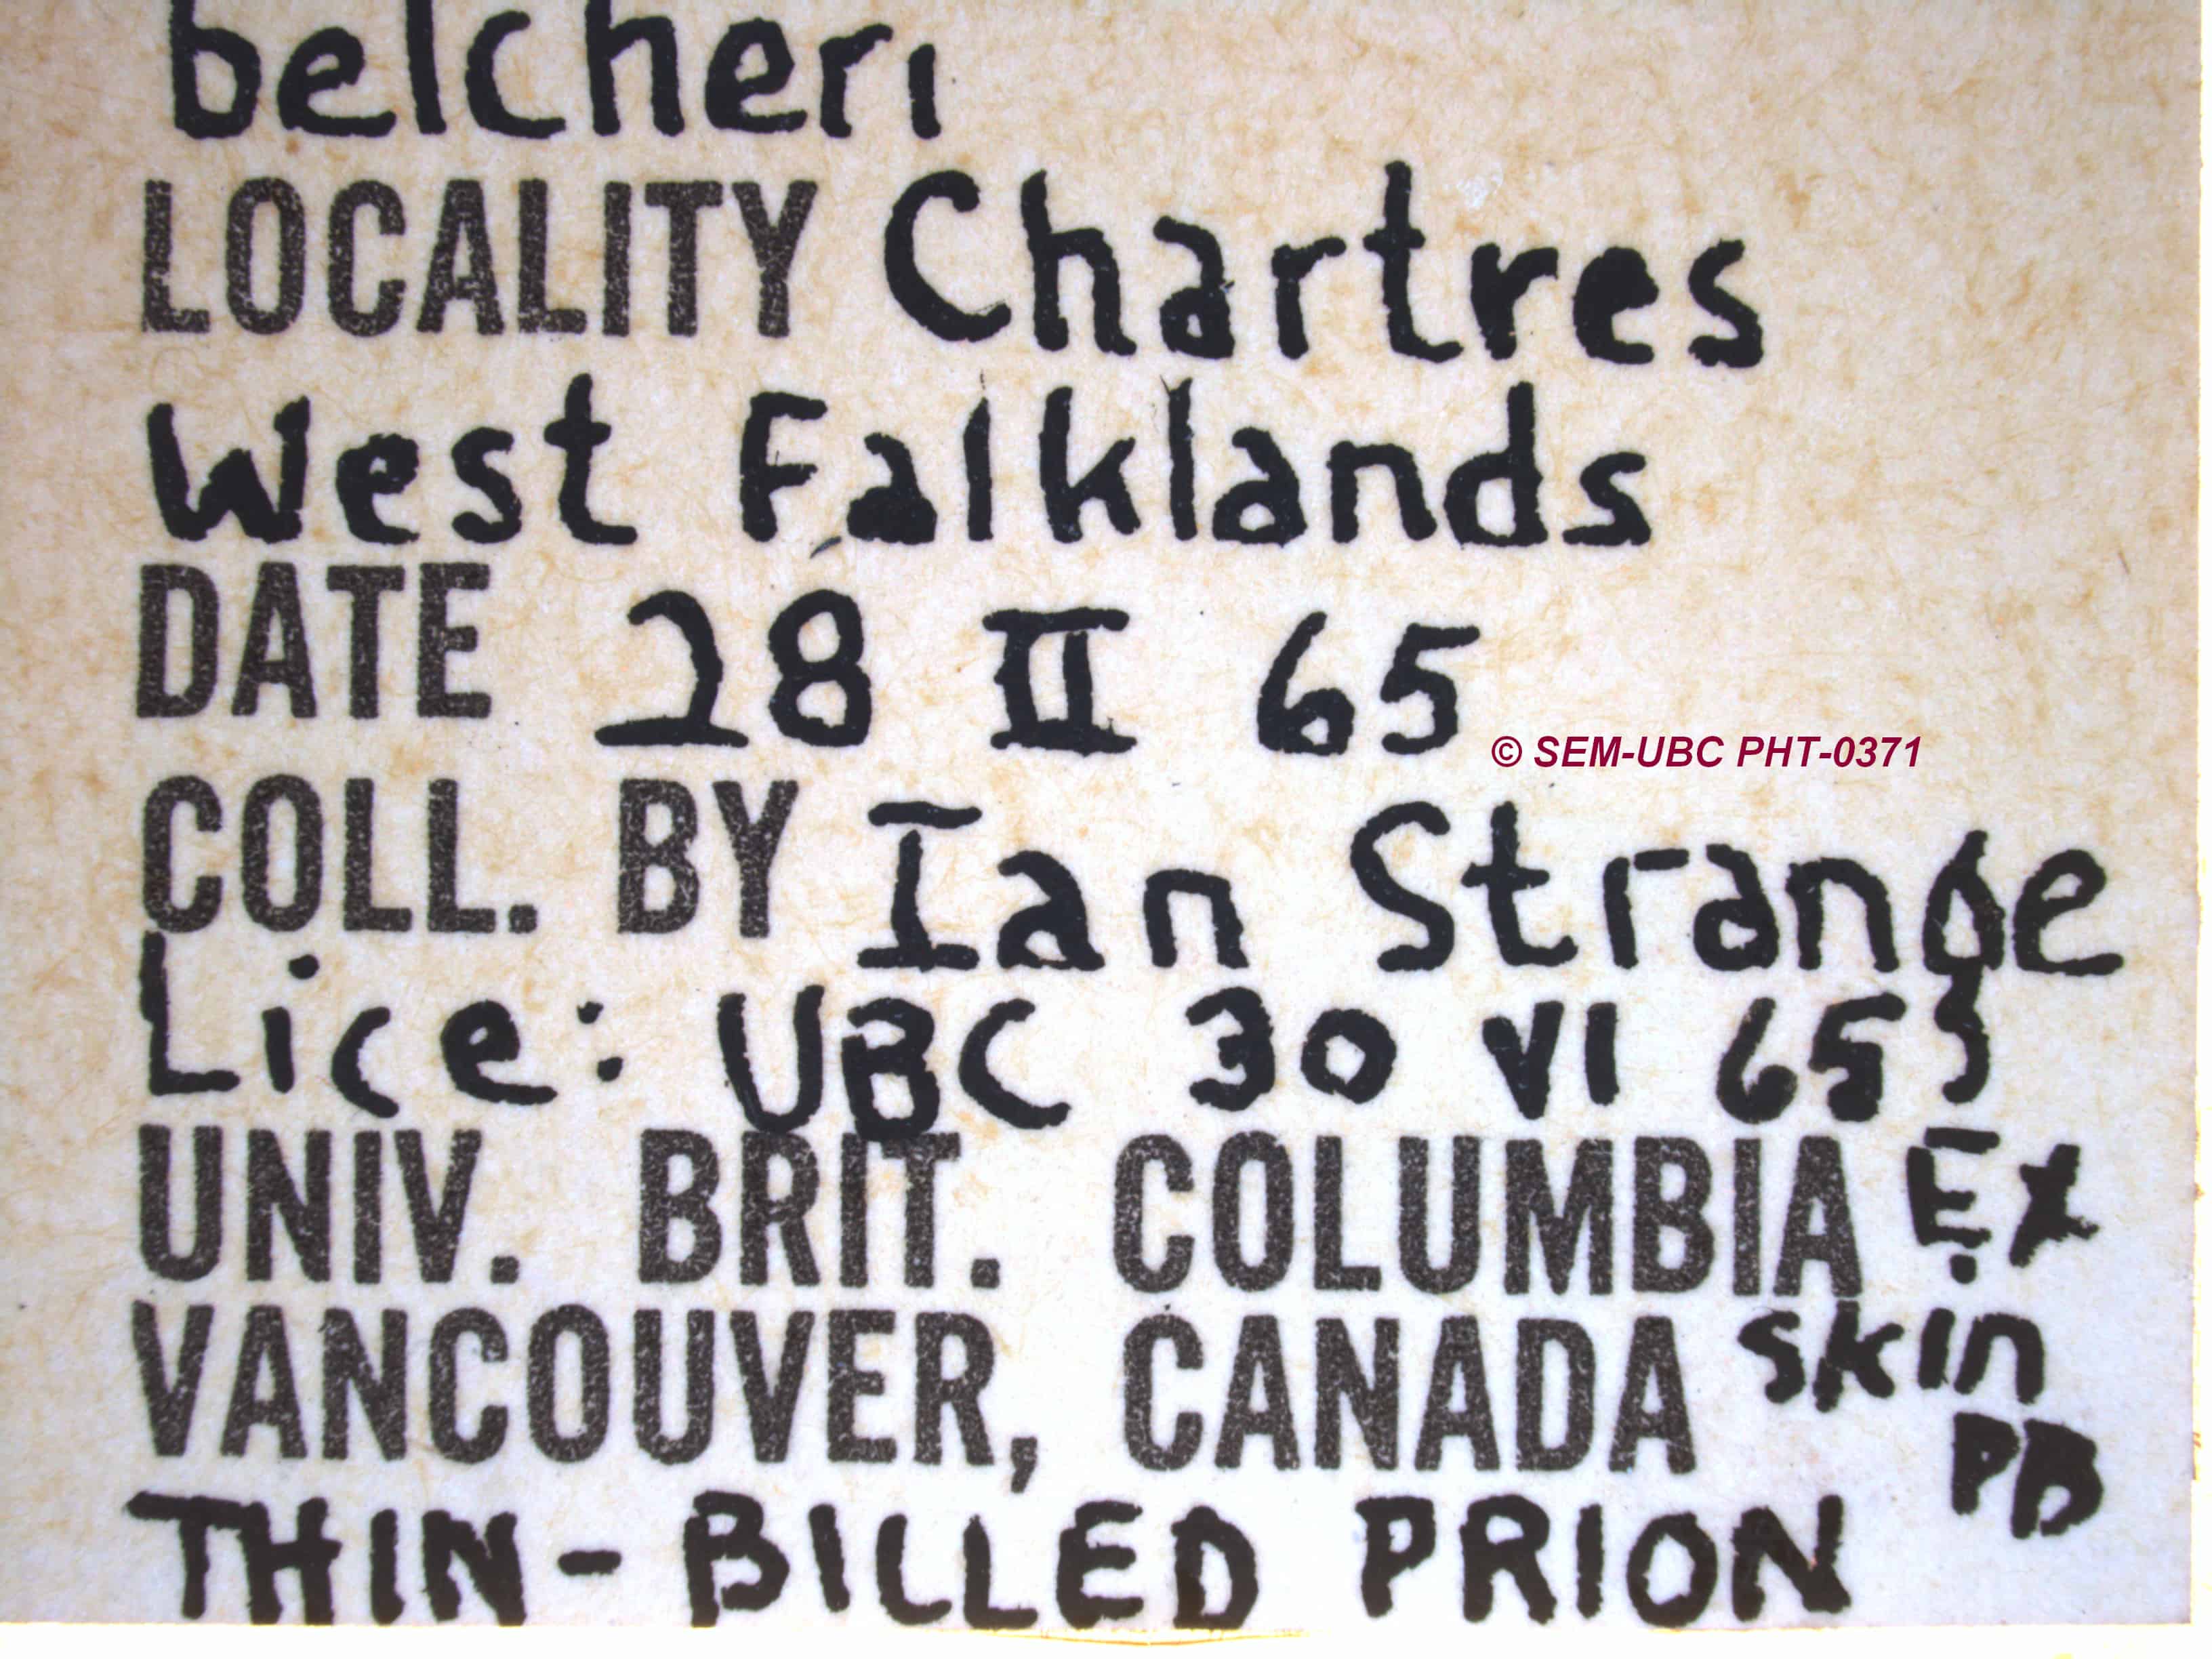 belcheri
LOCALITY Chartres
West Falklands
DATE 28 II 65
© SEM-UBC PHT-0371
COLL. BY Ian Strange
Lice: UBC 30 VI 65}
UNIV. BRIT. COLUMBIA Ex
VANCOUVER, CANADA skin
PB
THIN-BILLED PRION